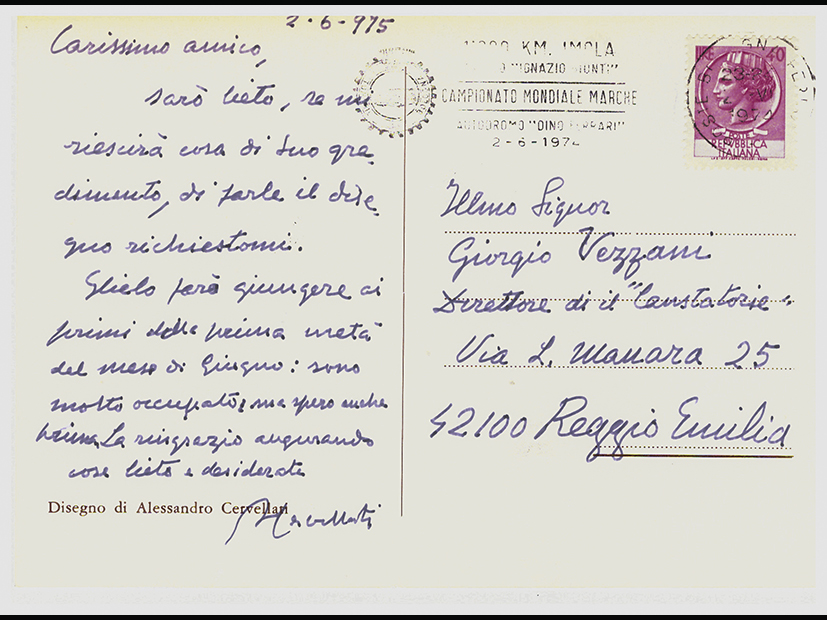 2.6.975
Carissimo amico,
sarò lieto, se mi
riescirà cosa di suo gra-
dimento, di farle il dise-
gno richiestomi.
Glielo farò giungere ai
primi della prima metà
del mese di Giugno: sono
molto occupato, ma spero anche
prima. La ringrazio augurando
cose liete e desiderate
Disegno di Alessandro Cervellati
ACervellati
KM. IMOLA
"IGNAZIO GIUNTI"
CAMPIONATO MONDIALE MARCHE
AUTODROMO "DINO FERRARI"
2-6-1974
40
POSTE
REPVBBLICA
ITALIANA
Illmo Signor
Giorgio Vezzani
Direttore di il "Cantastorie"
Via L. Manara 25
42100 Reggio Emilia